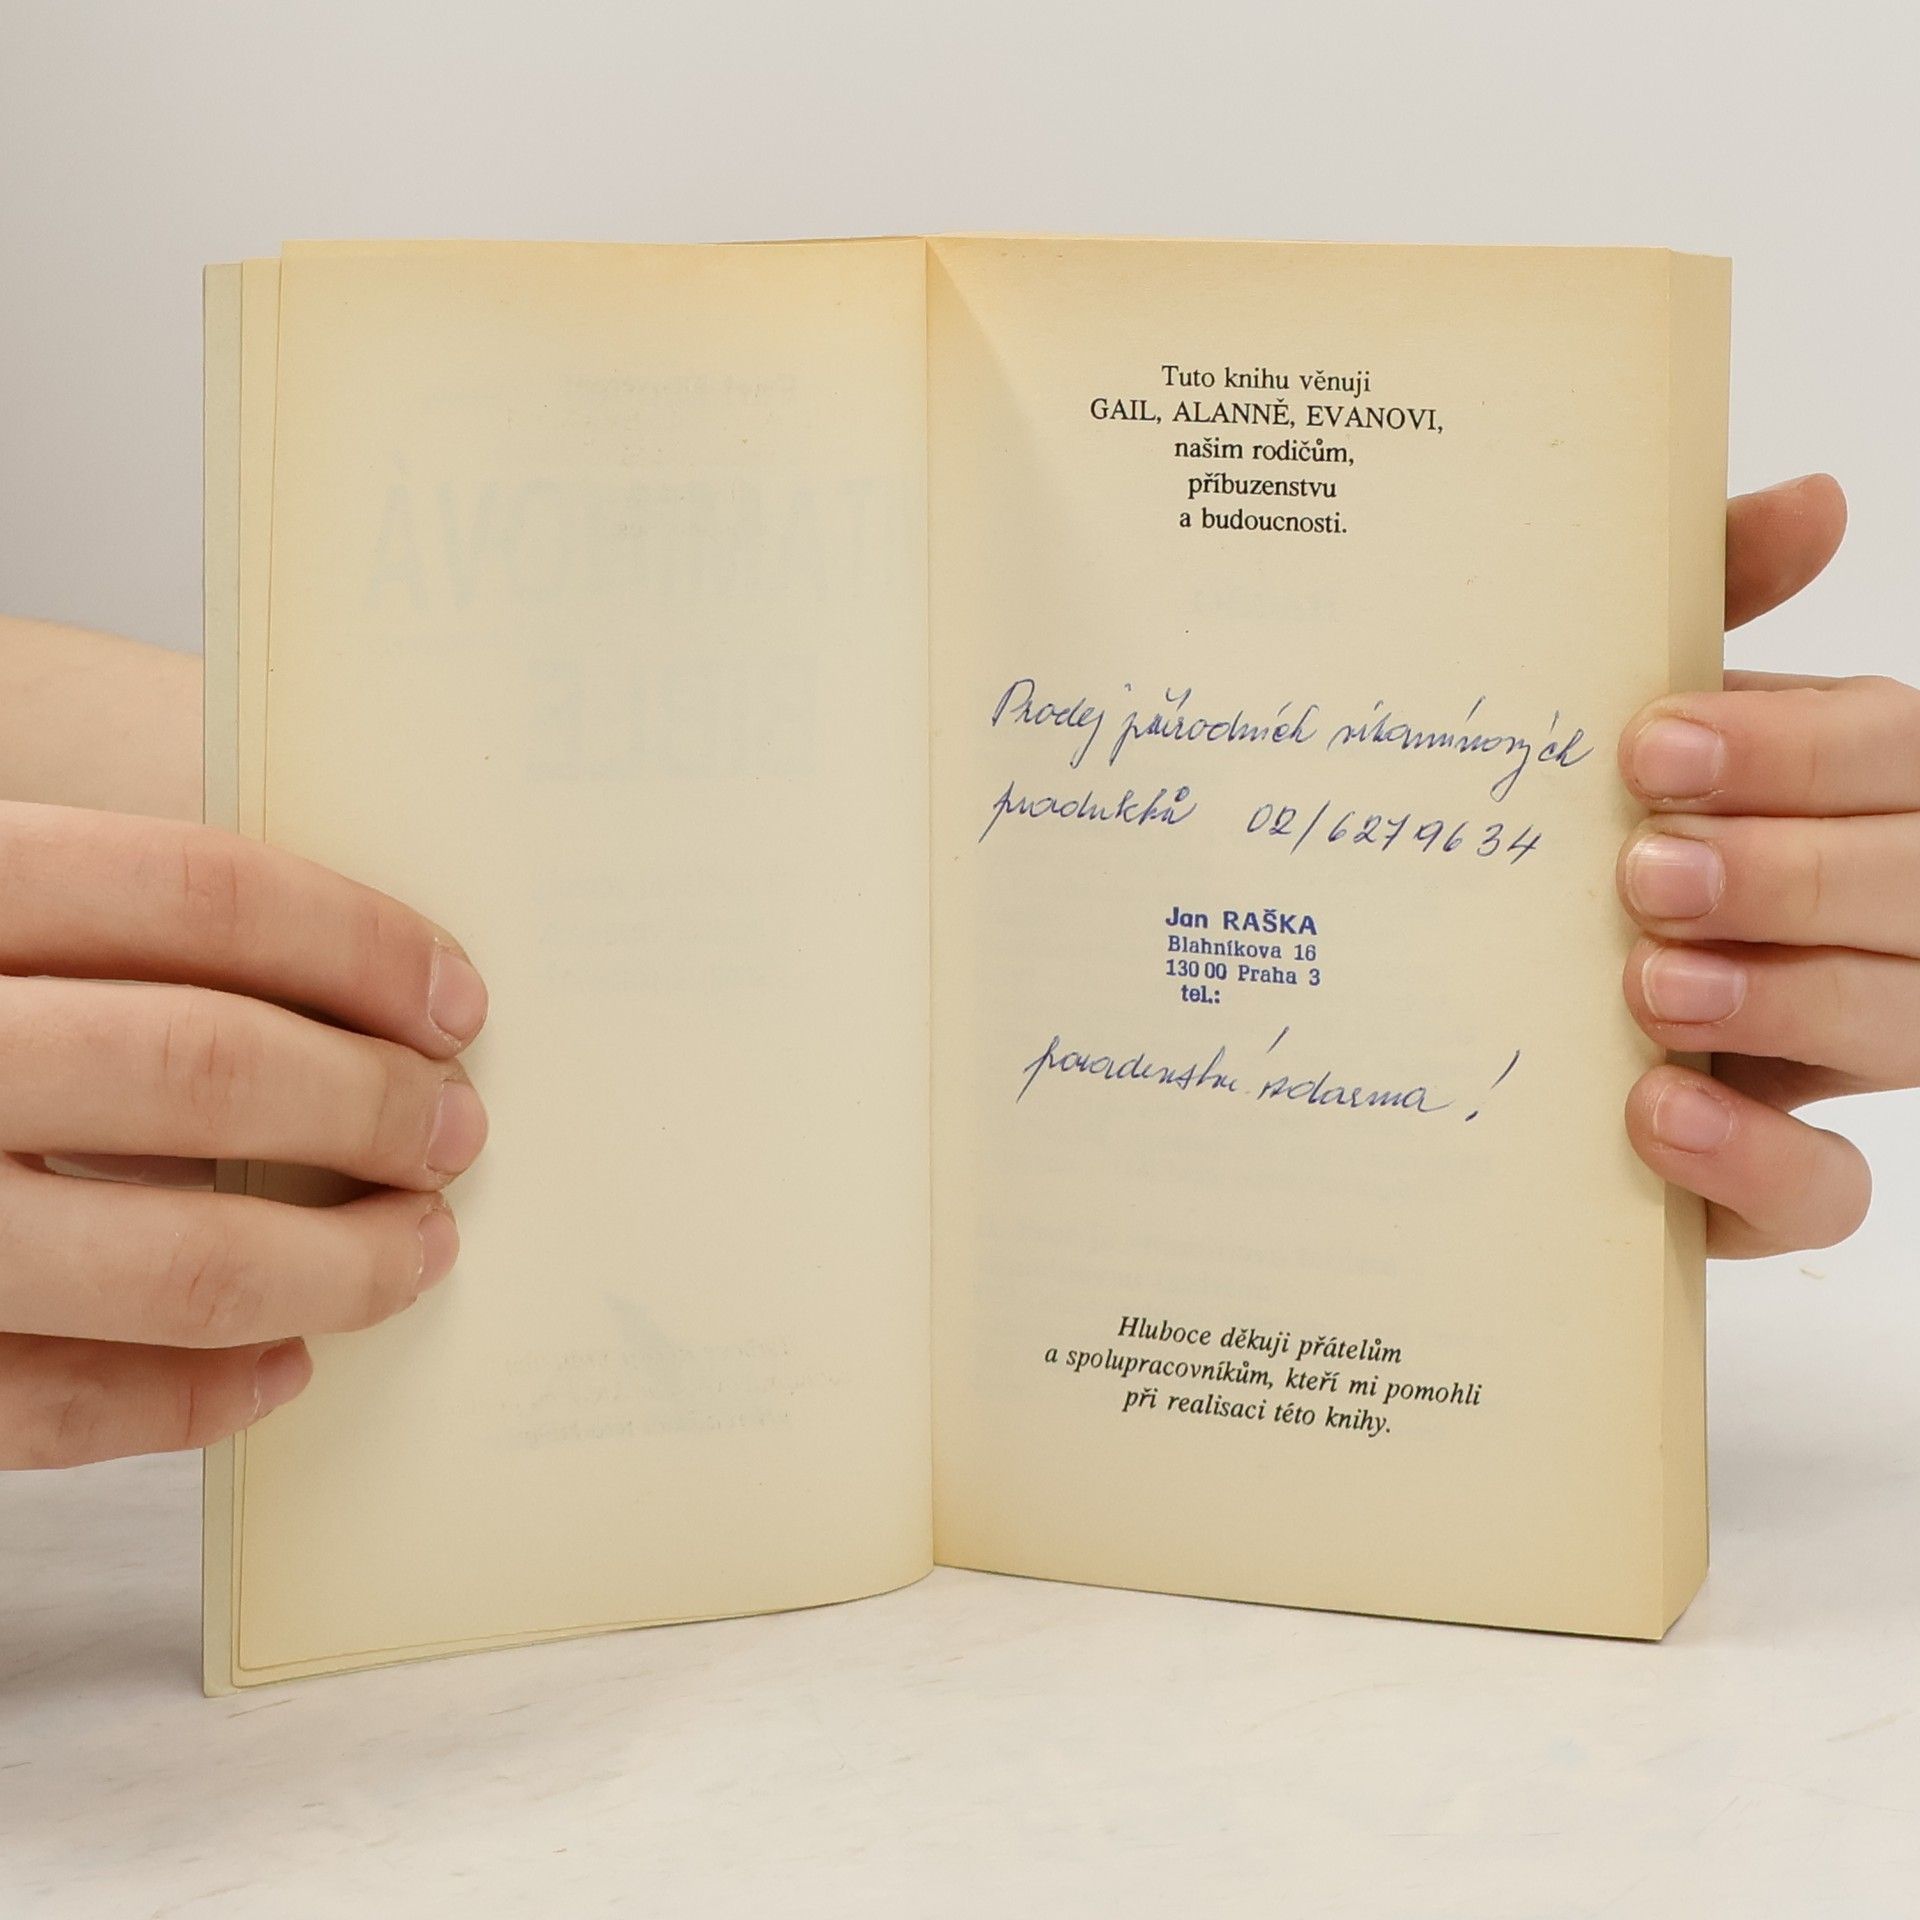 Tuto knihu věnuji
GAIL, ALANNĚ, EVANOVI,
našim rodičům,
příbuzenstvu
a budoucnosti.
Prodej přírodních vitamínových
produktů 02/6279634
Jan RAŠKA
Blahníkova 16
130 00 Praha 3
tel.:
poradenství zdarma!
Hluboce děkuji přátelům
a spolupracovníkům, kteří mi pomohli
při realisaci této knihy.